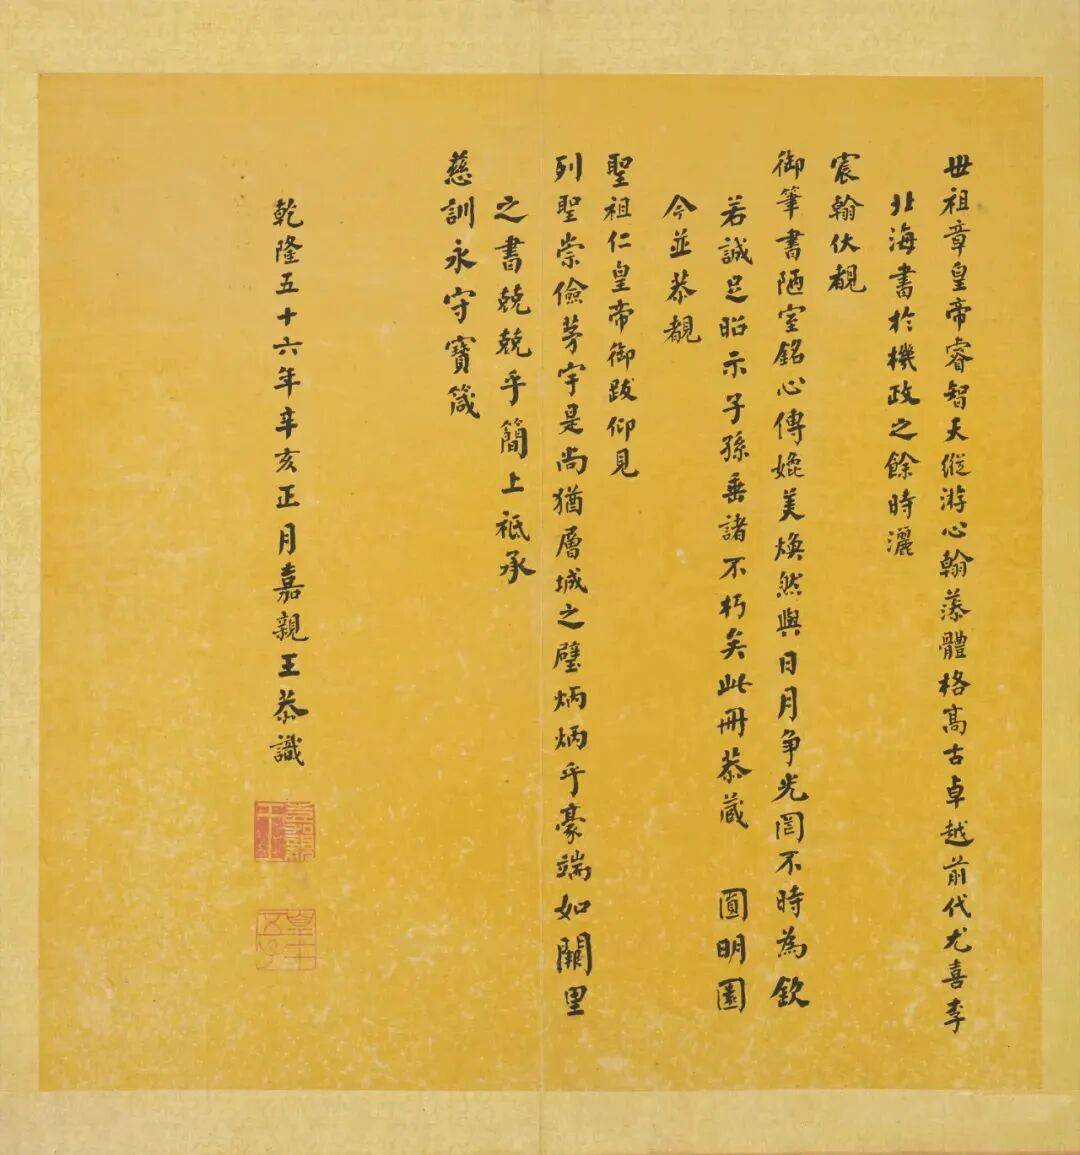 世祖章皇帝睿智天縱游心翰藻體格高古卓越前代尤喜李
北海書於機政之餘時灑
宸翰伏覩
御筆書陋室銘心傳媲美煥然與日月争光罔不時為欽
若誠足昭示子孫垂諸不朽矣此冊恭藏 圓明園
今並恭覩
聖祖仁皇帝御跋仰見
列聖崇儉茅宇是尚猶層城之壁炳炳乎豪端如闕里
之書兢兢乎簡上祗承
慈訓永守寶箴
乾隆五十六年辛亥正月嘉親王恭識
嘉親王
皇十五子